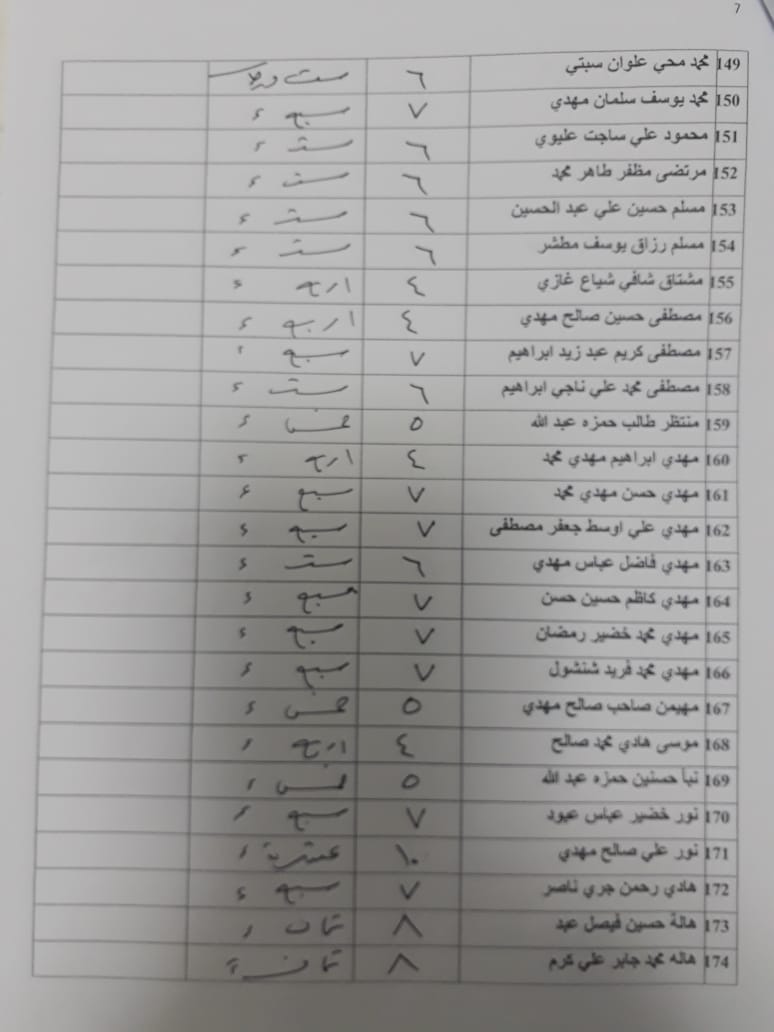 7
149 محمد محي علوان سبتي ٦ ست درجات
150 محمد يوسف سلمان مهدي ٧ سبع ء
151 محمود علي ساجت عليوي ٦ ست ء
152 مرتضى مظفر طاهر محمد ٦ ست ء
153 مسلم حسين علي عبد الحسين ٦ ست ء
154 مسلم رزاق يوسف مطشر ٦ ست ء
155 مشتاق شافي شياع غازي ٤ اربع ء
156 مصطفى حسين صالح مهدي ٤ اربع ء
157 مصطفى كريم عبد زيد ابراهيم ٧ سبع ء
158 مصطفى محمد علي ناجي ابراهيم ٦ ست ء
159 منتظر طالب حمزه عبد الله ٥ خمس ء
160 مهدي ابراهيم مهدي محمد ٤ اربع ء
161 مهدي حسن مهدي محمد ٧ سبع ء
162 مهدي علي اوسط جعفر مصطفى ٧ سبع ء
163 مهدي فاضل عباس مهدي ٦ ست ء
164 مهدي كاظم حسين حسن ٧ سبع ء
165 مهدي محمد خضير رمضان ٧ سبع ء
166 مهدي محمد فريد شنشول ٧ سبع ء
167 مهيمن صاحب صالح مهدي ٥ خمس ء
168 موسى هادي محمد صالح ٤ اربع ء
169 نبأ حسنين حمزه عبد الله ٥ خمس ء
170 نور خضير عباس عبود ٧ سبع ء
171 نور علي صالح مهدي ١٠ عشرة ء
172 هادي رحمن جري ناصر ٧ سبع ء
173 هالة حسين فيصل عبد ٨ ثمان ء
174 هاله محمد جابر علي كرم ٨ ثمان ء